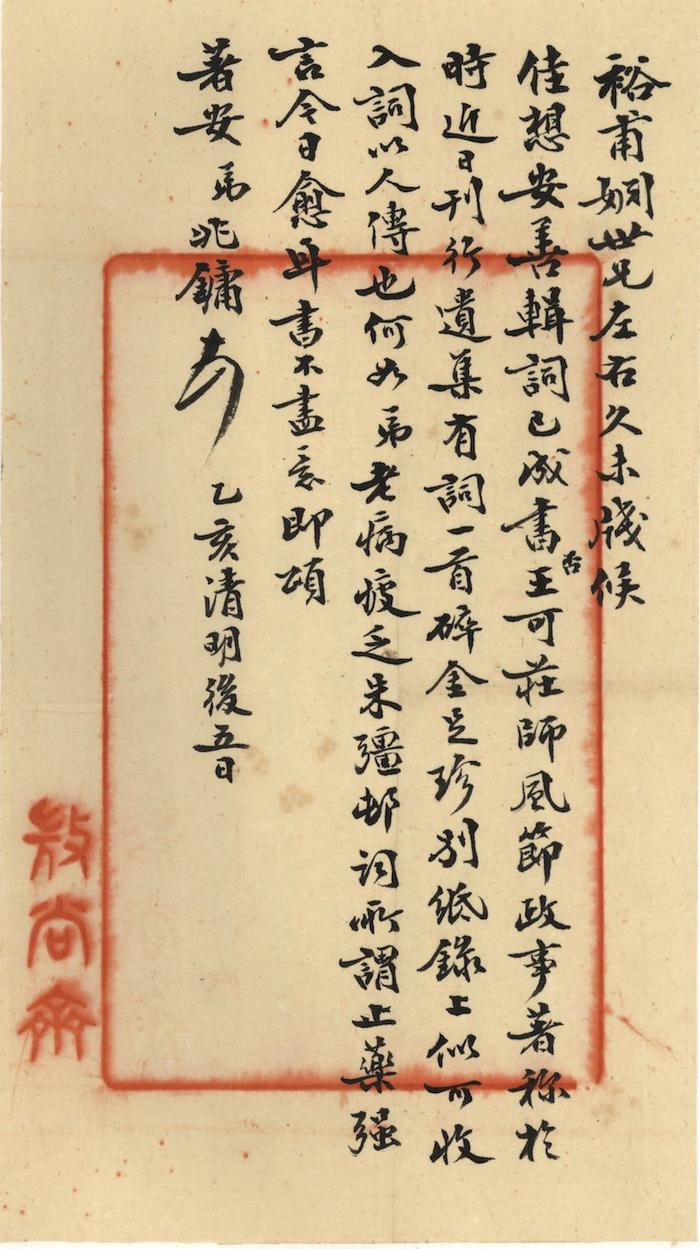 裕甫姻世兄左右久未牋候
佳想安善輯詞已成書否王可莊師風節政事著稱於
時近日刊行遺集有詞一首碎金足珍別紙錄上似可收
入詞以人傳也何如弟老病疲乏朱彊邨詞所謂止藥強
言今日愈耳書不盡意即頌
著安弟兆鏞 乙亥清明後五日
𢼸尚齋